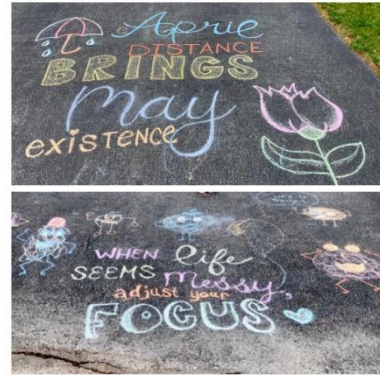 April
DISTANCE
BRINGS
May
existence
WHEN life
SEEMS messy,
adjust your
FOCUS